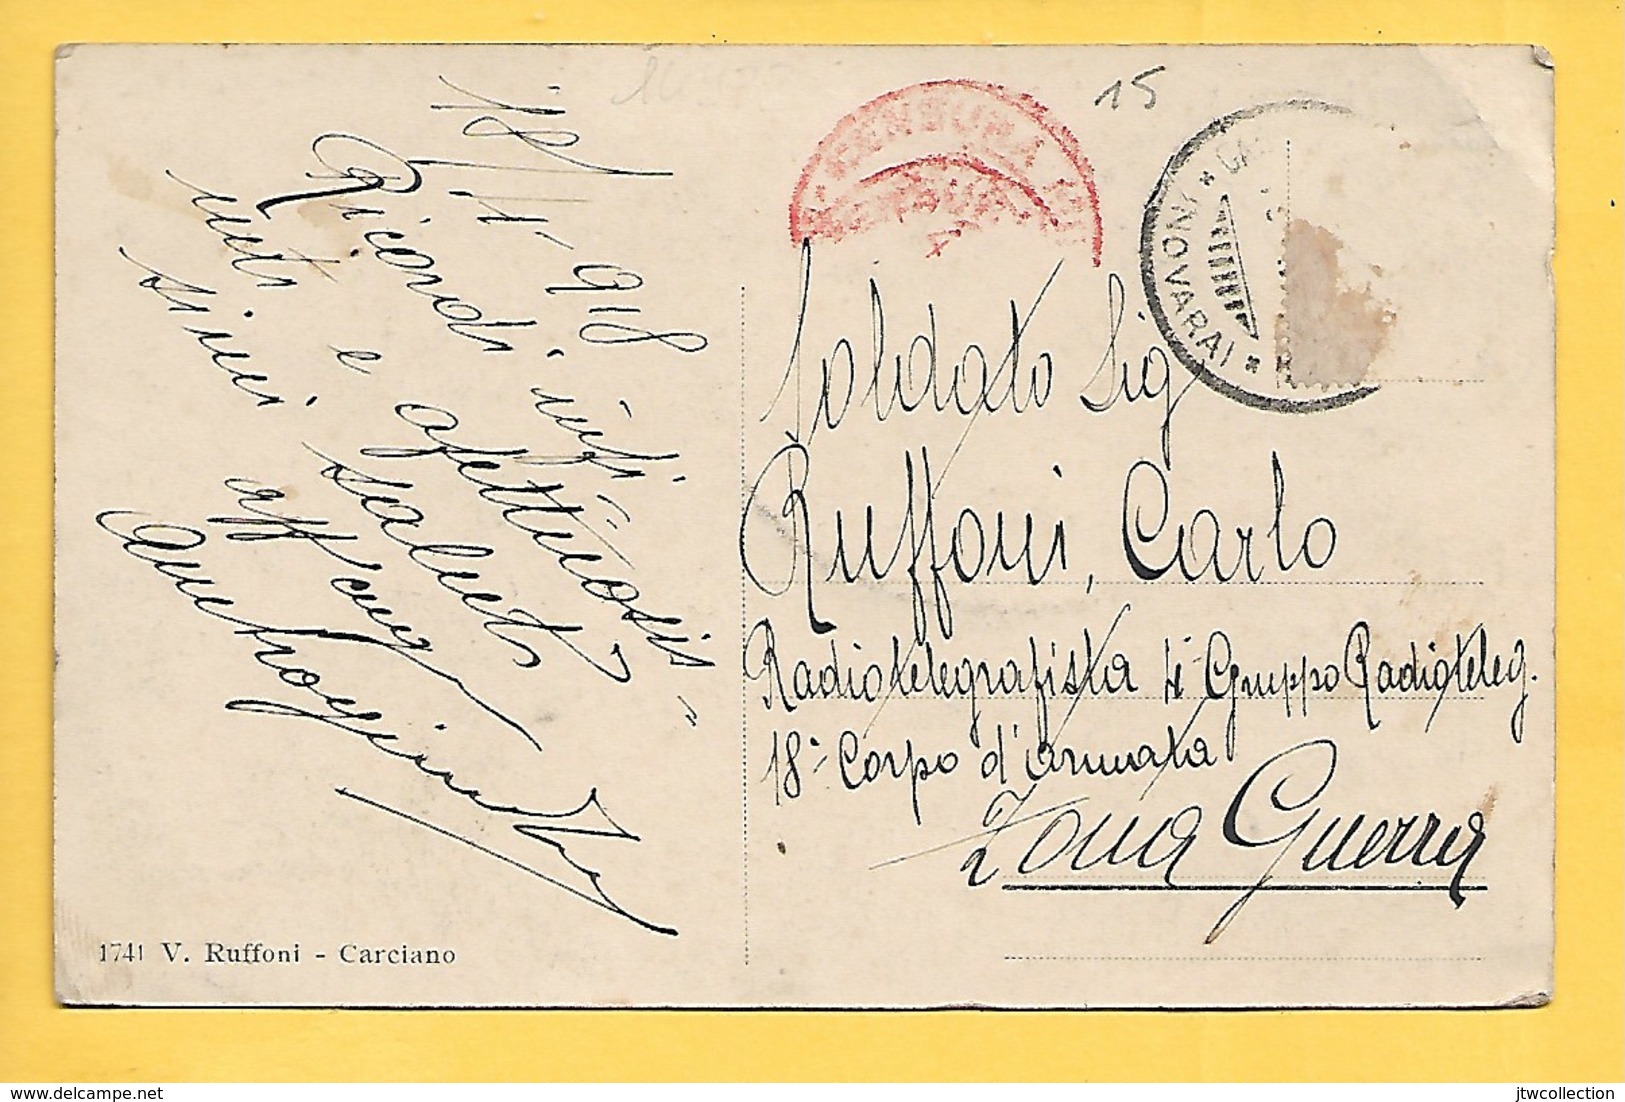 18/1°918
Ricordi infi
niti e afettuosis=
simi saluti
15
CENSURA
4
GA
NOVARA
Soldato Sig
Ruffoni, Carlo
Radiotelegrafista 4° Gruppo Radioteleg.
18° Corpo d'armata
Zona Guerra
1741 V. Ruffoni - Carciano
jtwcollection